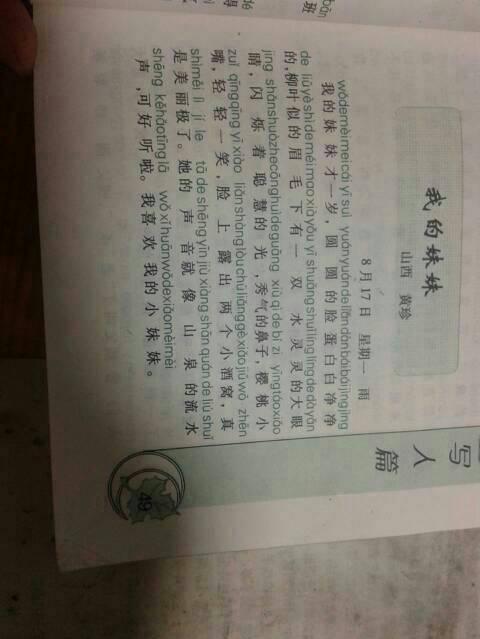 我的妹妹
山西 黄珍
8月17日 星期一 雨
wǒdemèimei cái yī suì yuányuándeliǎndànbáibáijìngjìng
我的妹妹才一岁,圆圆的脸蛋白白净净
de liǔyèshìdeméimaoxiàyǒu yī shuāngshuǐlínglíngdedàyǎn
的,柳叶似的眉毛下有一双水灵灵的大眼
jing shǎnshuòzhecōnghuìdeguāng xiù qì de bí zi yīngtáoxiǎo
睛,闪烁着聪慧的光,秀气的鼻子,樱桃小
zuǐ qīngqīng yī xiào liǎnshànglòuchūliǎnggèxiǎojiǔwō zhēn
嘴,轻轻一笑,脸上露出两个小酒窝,真
shìměi lì jí le tā deshēngyīn jiù xiàngshānquándeliúshuǐ
是美丽极了。她的声音就像山泉的流水
shēng kěhǎotīnglā wǒxǐhuānwǒdexiǎomèimèi
声,可好听啦。我喜欢我的小妹妹。
写人篇
49
班
得